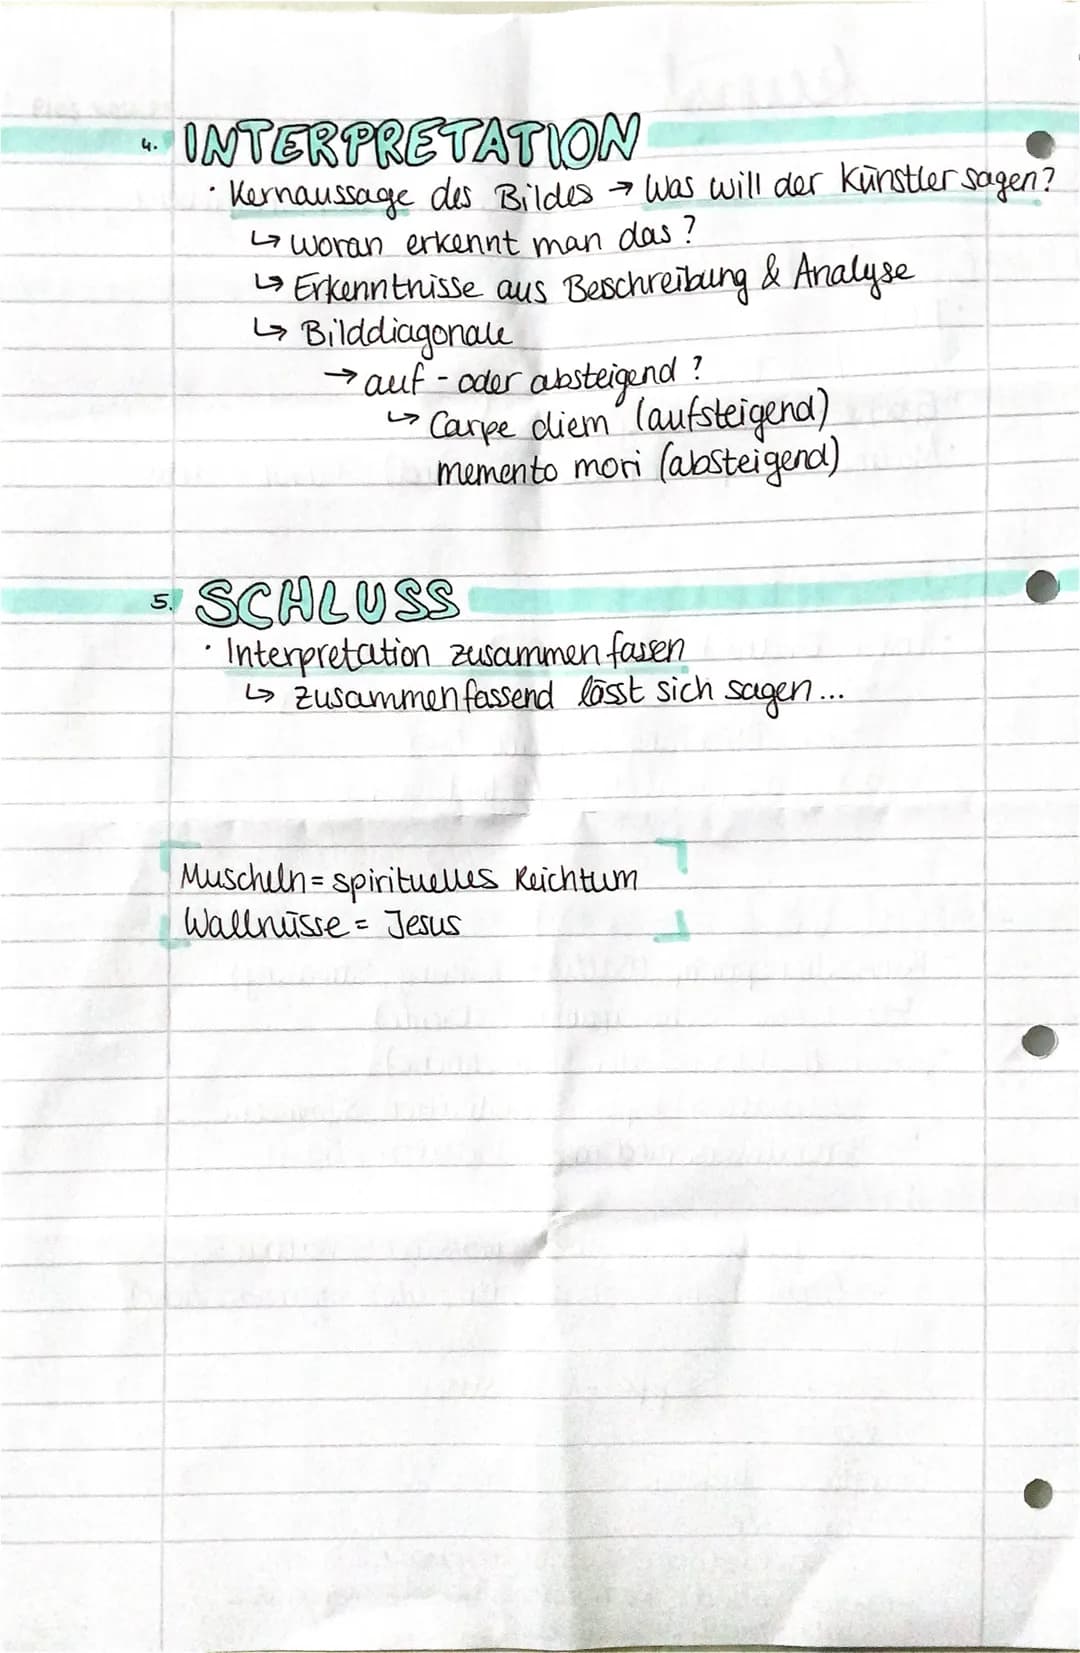 4. INTERPRETATION
· Kernaussage des Bildes → Was will der Künstler sagen?
↳ woran erkennt man das?
↳ Erkenntnisse aus Beschreibung & Analyse
↳ Bilddiagonale
→ auf- oder absteigend?
↳ Carpe diem (aufsteigend)
memento mori (absteigend)
5. SCHLUSS
· Interpretation zusammenfassen
↳ zusammenfassend lässt sich sagen...
Muscheln = spirituelles Reichtum
Wallnüsse = Jesus